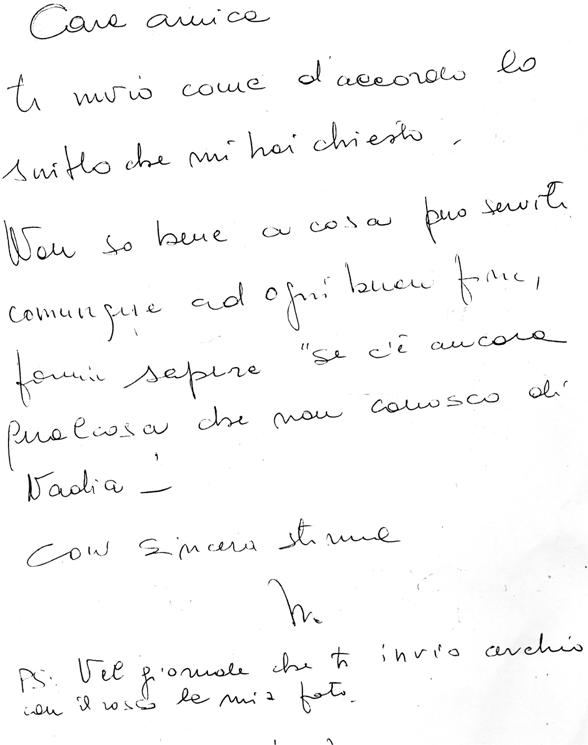 Cara amica
ti invio come d'accordo lo
scritto che mi hai chiesto.
Non so bene a cosa può servirti
comunque ad ogni buon fine,
fammi sapere "se c'è ancora
qualcosa che non conosco di
Nadia"
Con sincera stima
PS: Nel giornale che ti invio cerchio
con il rosso la mia foto.